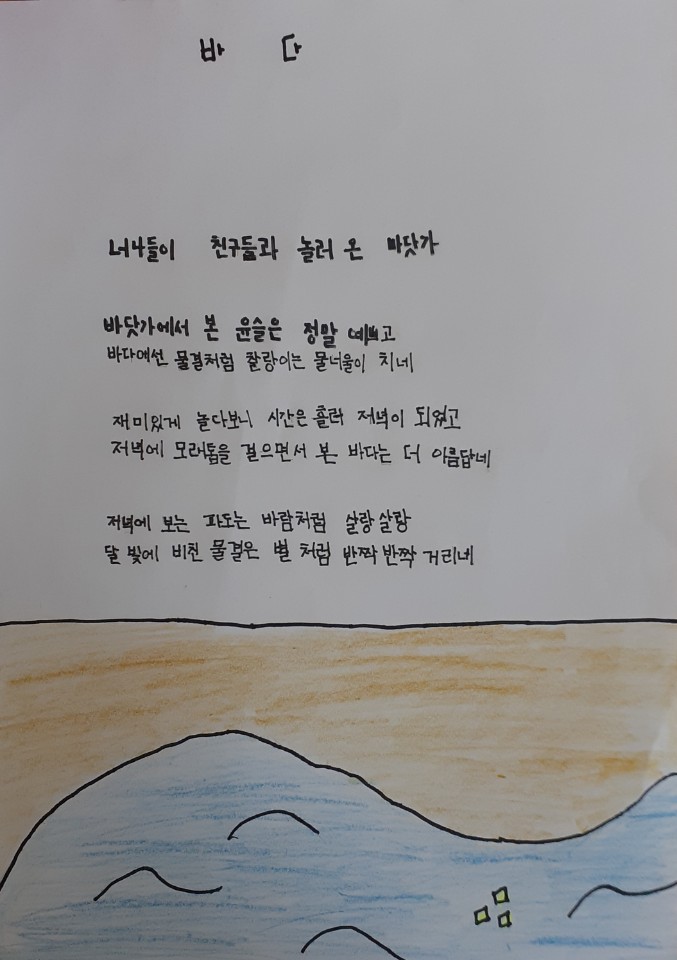 바 다
너나들이 친구들과 놀러 온 바닷가
바닷가에서 본 윤슬은 정말 예쁘고
바다에선 물결처럼 찰랑이는 물너울이 치네
재미있게 놀다보니 시간은 흘러 저녁이 되었고
저녁에 모래톱을 걸으면서 본 바다는 더 아름답네
저녁에 보는 파도는 바람처럼 살랑살랑
달 빛에 비친 물결은 별 처럼 반짝반짝 거리네